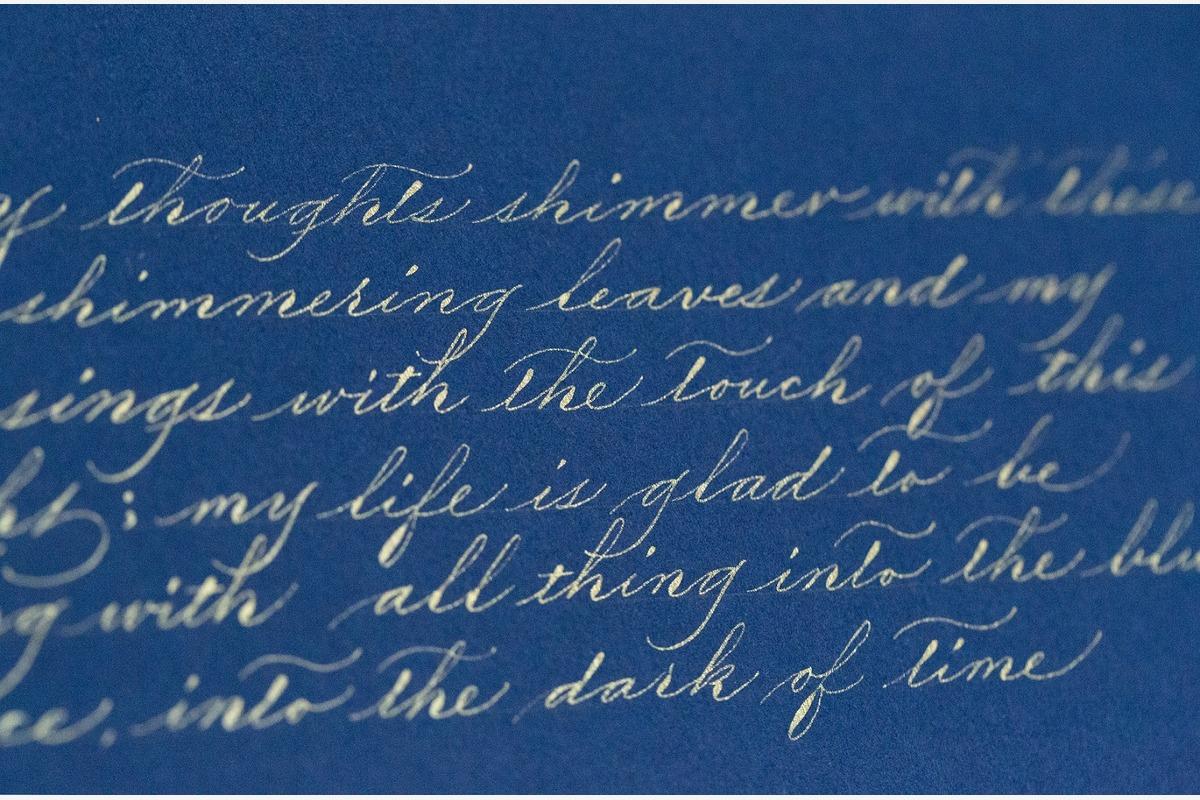 thoughts shimmer with these
shimmering leaves and my
sings with the touch of this
; my life is glad to be
with all thing into the
, into the dark of time